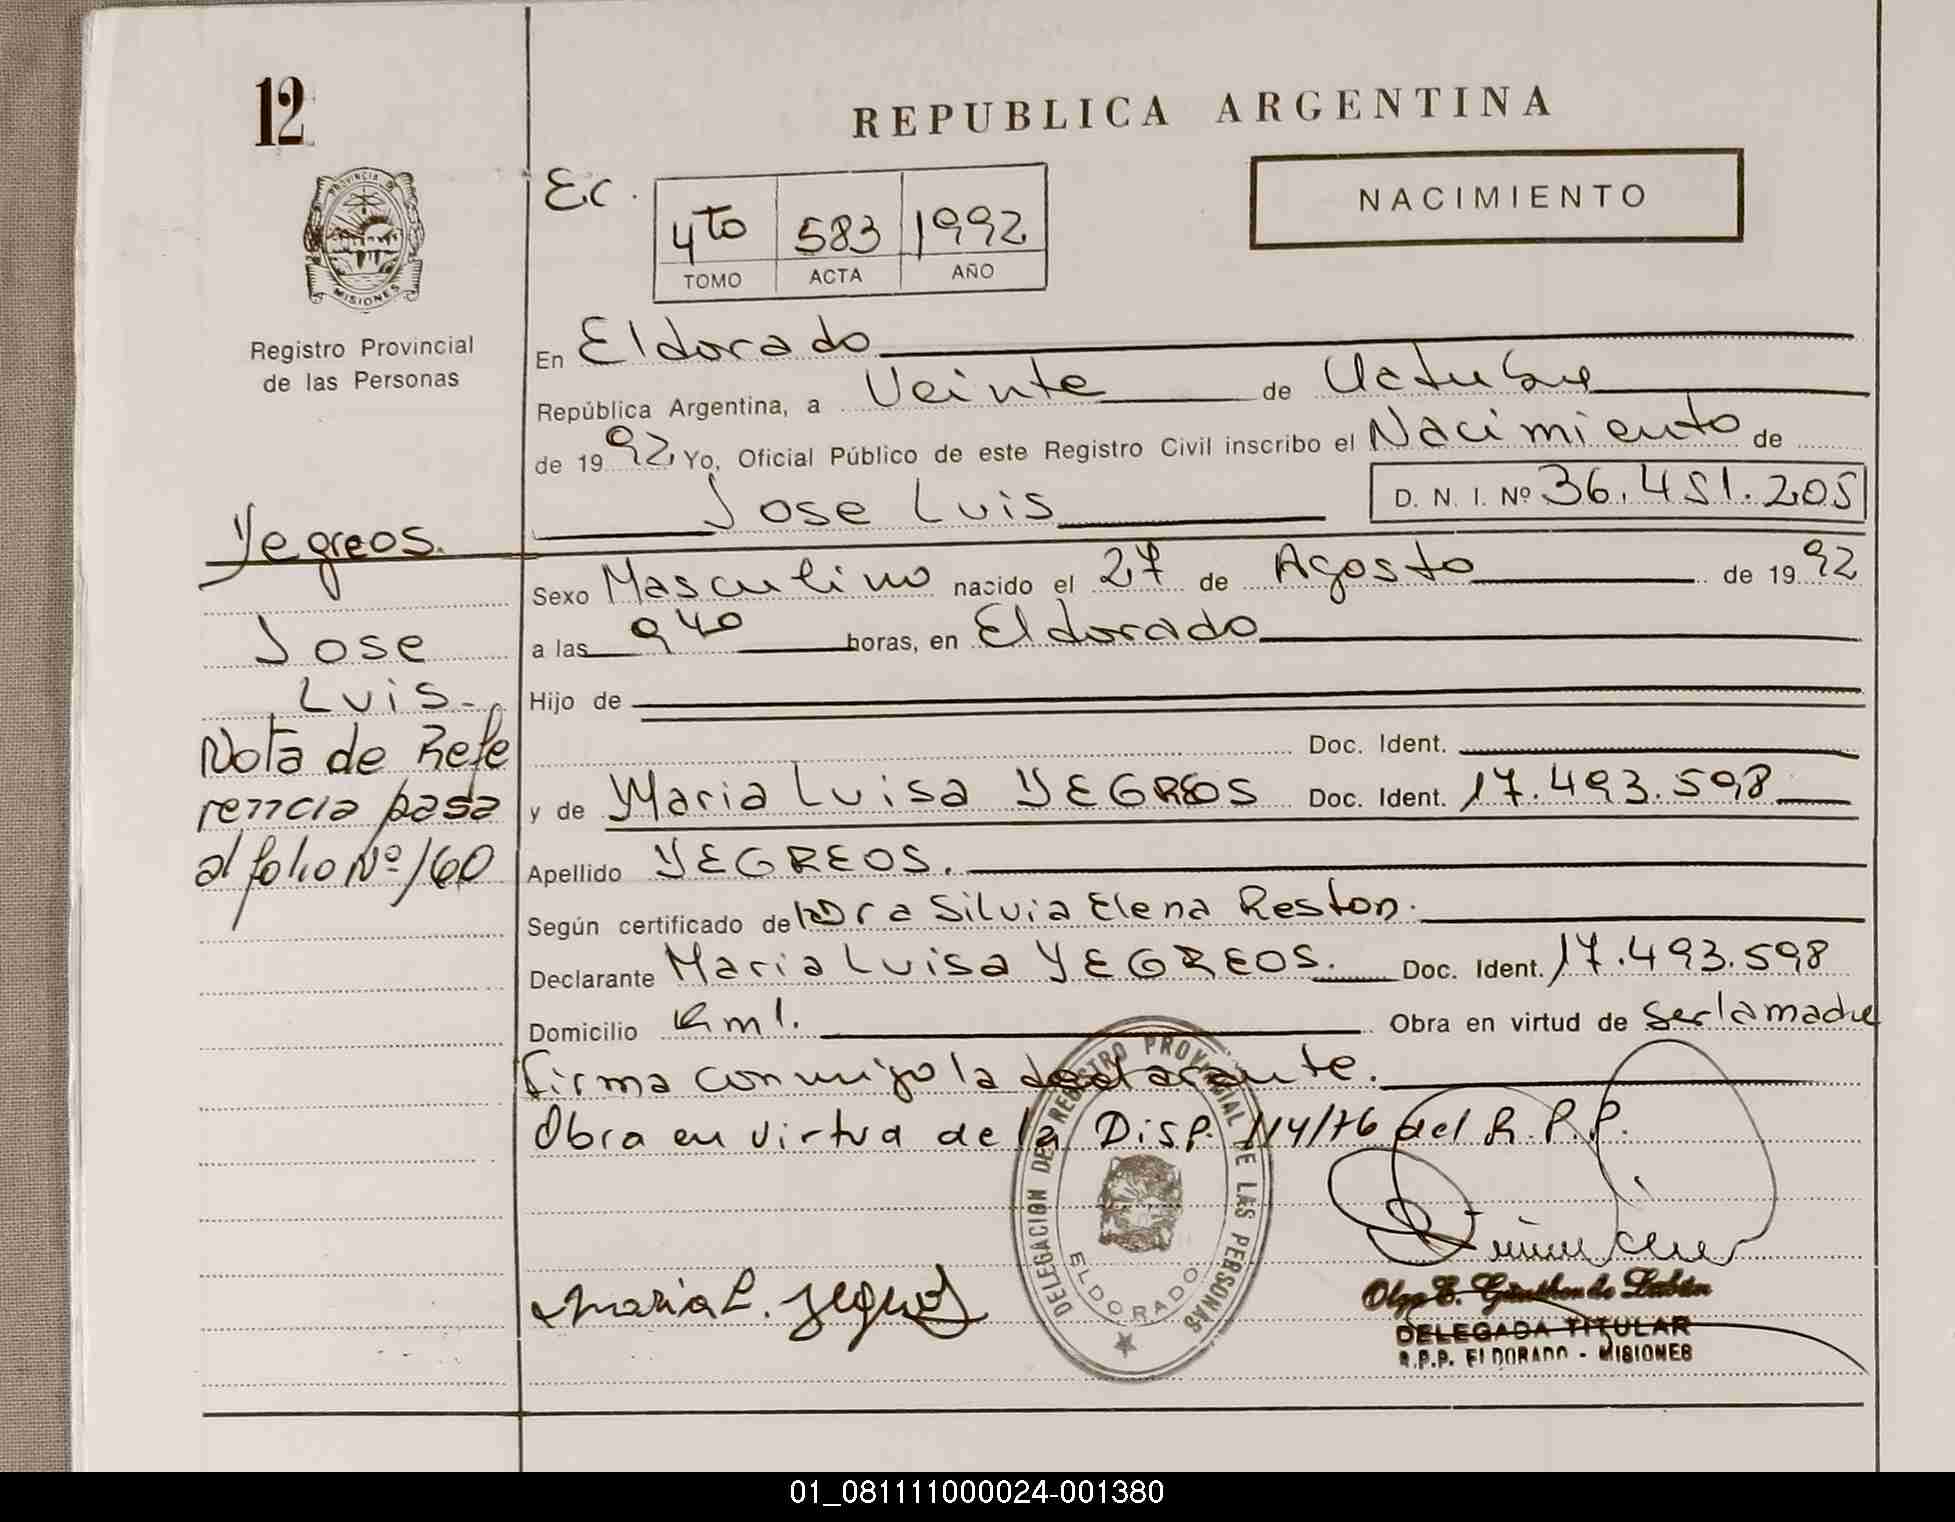 12
REPUBLICA ARGENTINA
Ec.
4to 583 1992
TOMO ACTA AÑO
NACIMIENTO
PROVINCIA DE
MISIONES
Registro Provincial
de las Personas
Yegreos.
Jose
Luis.-
Nota de Refe
rencia pasa
al folio Nº 160
En Eldorado
República Argentina, a Veinte de Octubre
de 1992, Yo, Oficial Público de este Registro Civil inscribo el Nacimiento de
Jose Luis D. N. I. Nº 36.451.205
Sexo Masculino nacido el 27 de Agosto de 1992
a las 9 40 horas, en Eldorado
Hijo de
Doc. Ident.
y de Maria Luisa YEGREOS Doc. Ident. 17.493.598
Apellido YEGREOS.
Según certificado de la Dra Silvia Elena Reston.
Declarante Maria Luisa YEGREOS. Doc. Ident. 17.493.598
Domicilio Km 1. Obra en virtud de ser la madre
firma conmigo la declarante.
Obra en virtud de la Disp. 114/76 del R.P.P.
DELEGACION DEL REGISTRO PROVINCIAL DE LAS PERSONAS
ELDORADO
Maria L. Yegreos
Olga E. Günther de Labán
DELEGADA TITULAR
R.P.P. ELDORADO - MISIONES
01_081111000024-001380